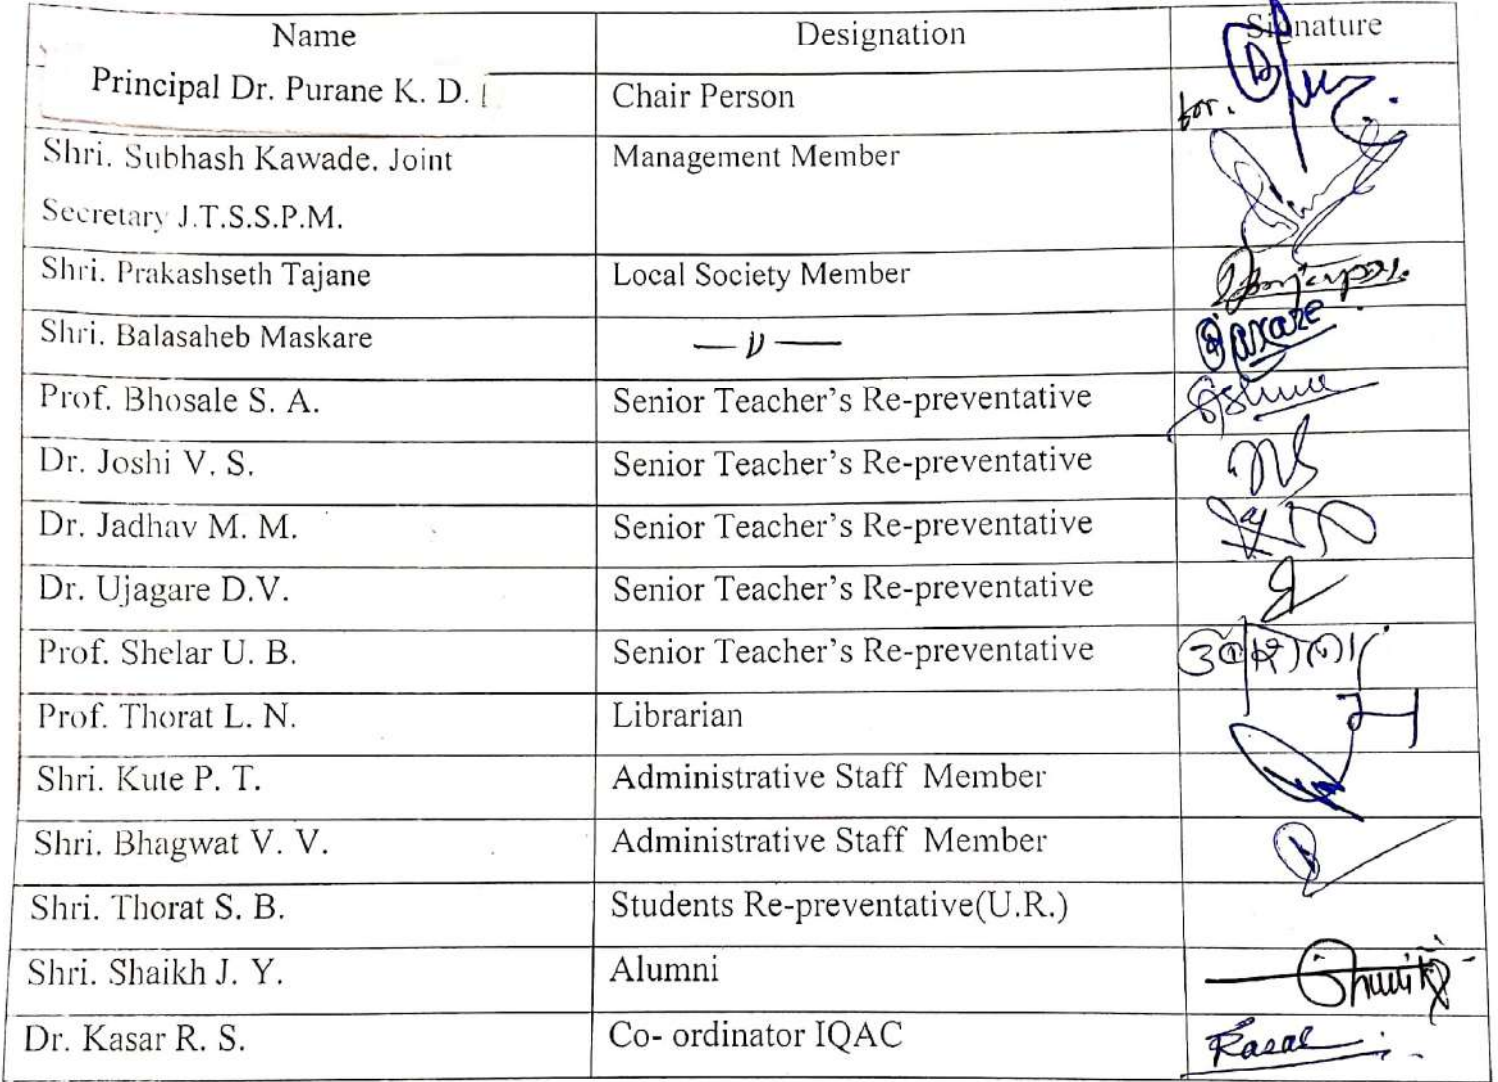 Name Designation Signature
Principal Dr. Purane K. D. Chair Person for.
Shri. Subhash Kawade. Joint Management Member
Secretary J.T.S.S.P.M.
Shri. Prakashseth Tajane Local Society Member
Shri. Balasaheb Maskare — 〃 —
Prof. Bhosale S. A. Senior Teacher’s Re-preventative
Dr. Joshi V. S. Senior Teacher’s Re-preventative
Dr. Jadhav M. M. Senior Teacher’s Re-preventative
Dr. Ujagare D.V. Senior Teacher’s Re-preventative
Prof. Shelar U. B. Senior Teacher’s Re-preventative
Prof. Thorat L. N. Librarian
Shri. Kute P. T. Administrative Staff Member
Shri. Bhagwat V. V. Administrative Staff Member
Shri. Thorat S. B. Students Re-preventative(U.R.)
Shri. Shaikh J. Y. Alumni
Dr. Kasar R. S. Co- ordinator IQAC Kasar